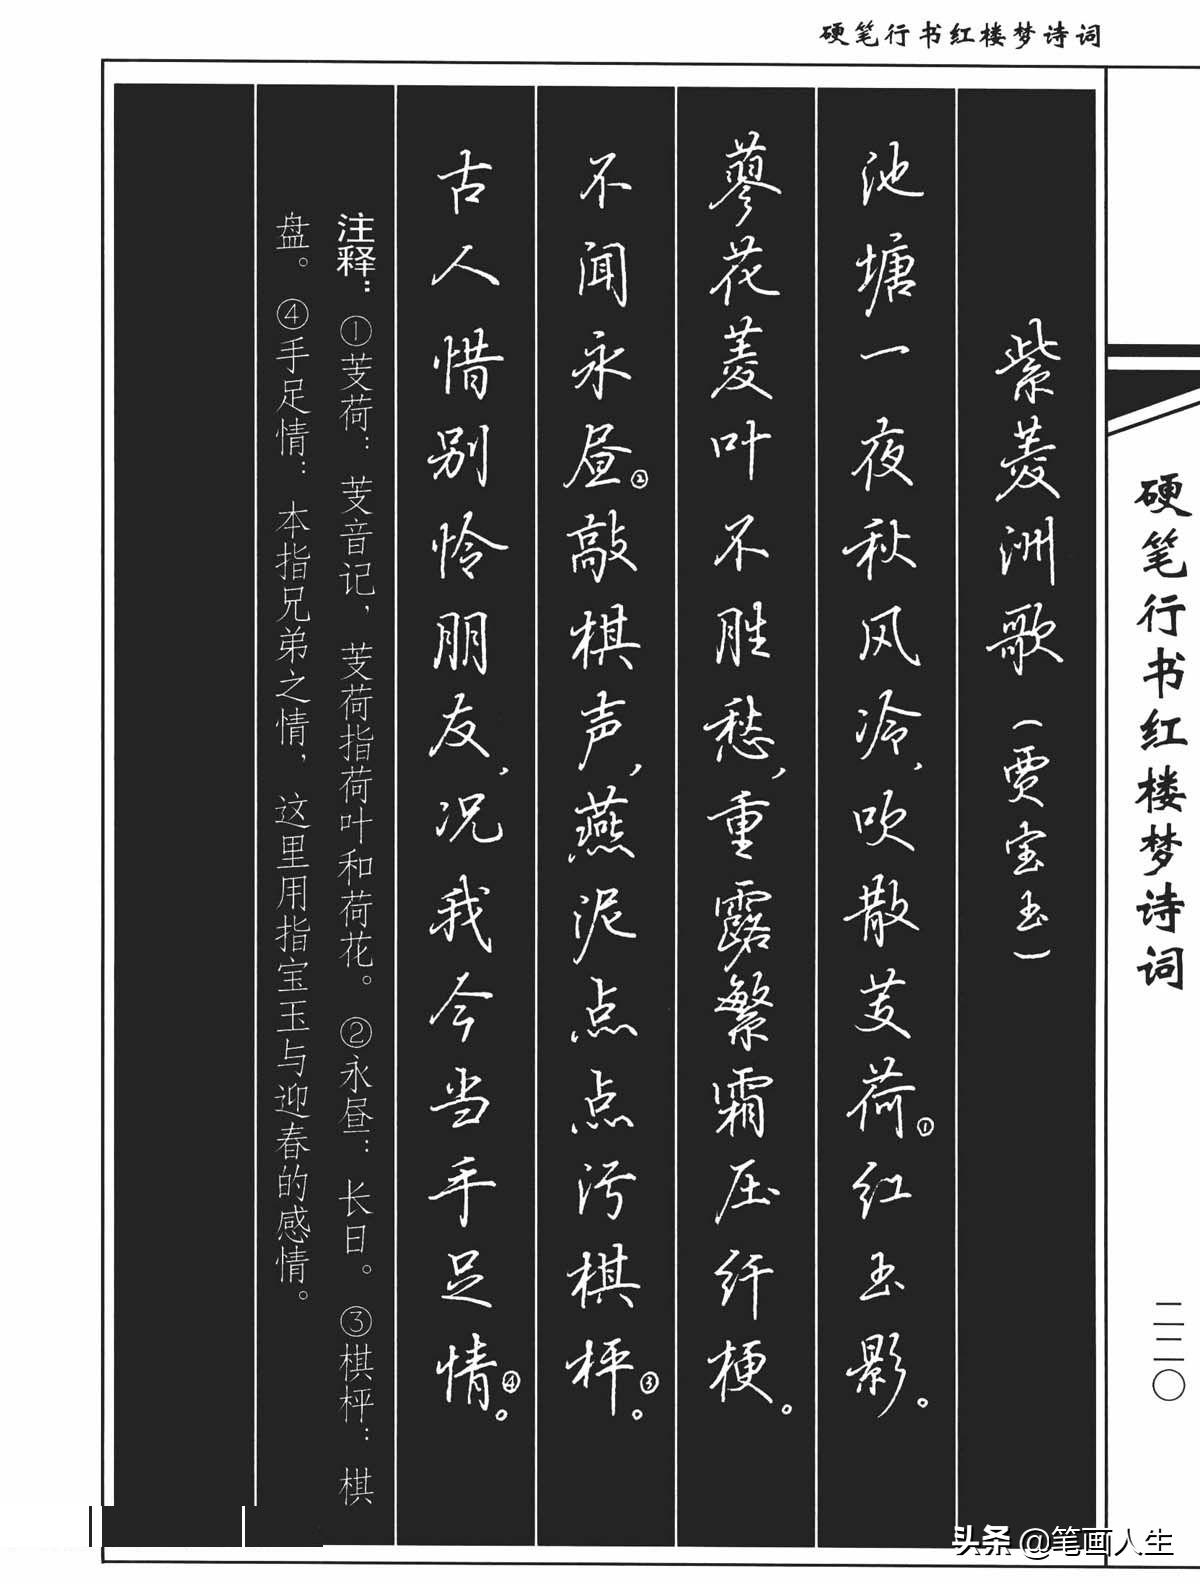 硬笔行书红楼梦诗词
硬笔行书红楼梦诗词
二二〇
紫菱洲歌（贾宝玉）
池塘一夜秋风冷，吹散芰荷①红玉影。
蓼花菱叶不胜愁，重露繁霜压纤梗。
不闻永昼②敲棋声，燕泥点点污棋枰③。
古人惜别怜朋友，况我今当手足情④。
注释：①芰荷：芰音记，芰荷指荷叶和荷花。②永昼：长日。③棋枰：棋
盘。④手足情：本指兄弟之情，这里用指宝玉与迎春的感情。
头条 @笔画人生